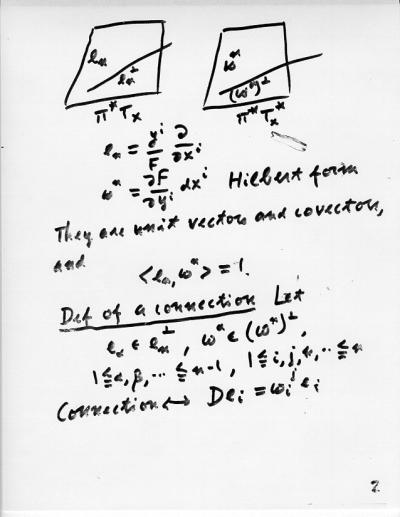 eₙ eₙ^⊥ ωⁿ (ωⁿ)^⊥
π*Tₓ π*Tₓ*
eₙ = yⁱ/F ∂/∂xⁱ
ωⁿ = ∂F/∂yⁱ dxⁱ Hilbert form
They are unit vectors and covectors,
and
<eₙ, ωⁿ> = 1.
Def of a connection Let
e_α ∈ eₙ^⊥, ω^α ∈ (ωⁿ)^⊥,
1 ≦ α, β, ··· ≦ n-1, 1 ≦ i, j, k, ·· ≦ n
Connection ↔ Deᵢ = ωᵢʲ eⱼ